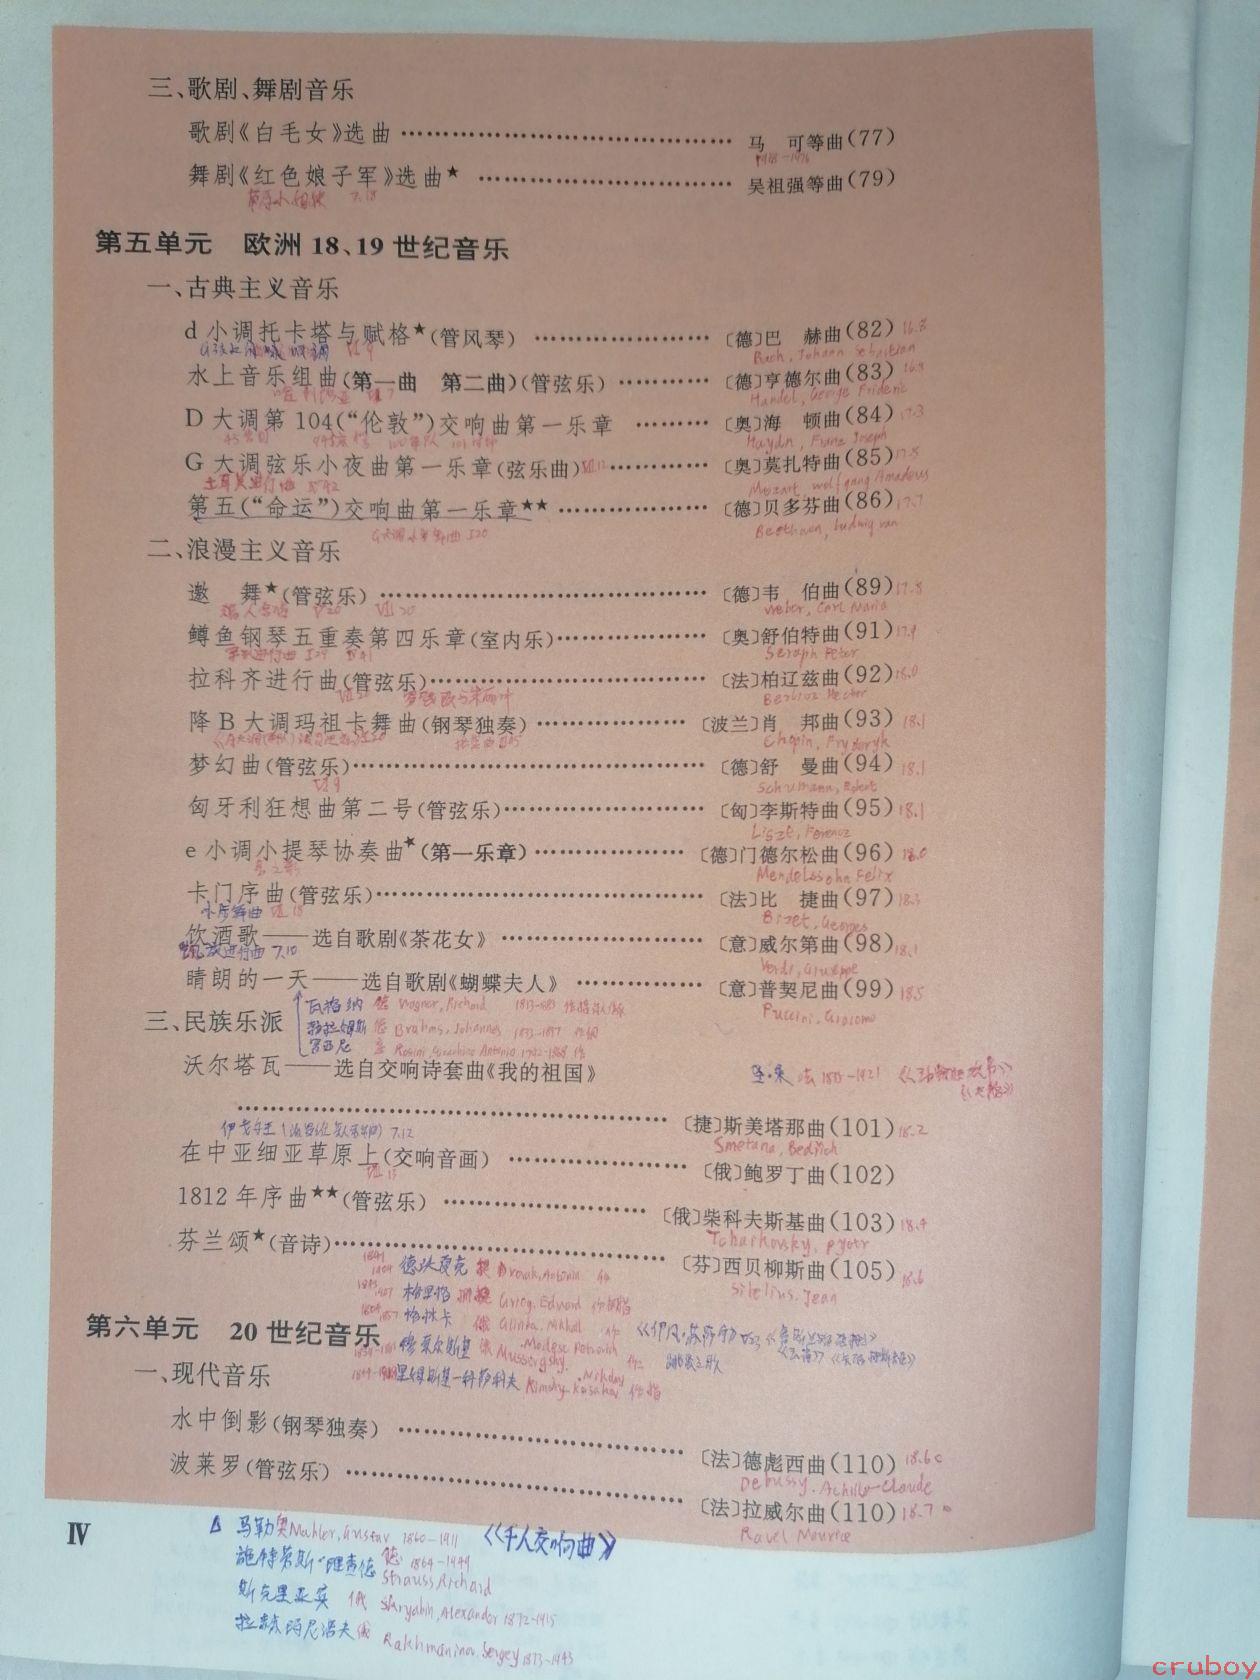 三、歌剧、舞剧音乐
歌剧《白毛女》选曲 …… 马 可等曲(77)
舞剧《红色娘子军》选曲★ …… 吴祖强等曲(79)
7.18
第五单元 欧洲18、19世纪音乐
一、古典主义音乐
d小调托卡塔与赋格★(管风琴) …… 〔德〕巴 赫曲(82)
Bach, Johann Sebastian
水上音乐组曲(第一曲 第二曲)(管弦乐) …… 〔德〕亨德尔曲(83)
Handel, George Frideric
D大调第104(“伦敦”)交响曲第一乐章 …… 〔奥〕海 顿曲(84)
Haydn, Franz Joseph
G大调弦乐小夜曲第一乐章(弦乐曲) …… 〔奥〕莫扎特曲(85)
土耳其进行曲 Mozart, wolfgang Amadeus
第五(“命运”)交响曲第一乐章★★ …… 〔德〕贝多芬曲(86)
Beethven, Ludwig van
二、浪漫主义音乐
邀 舞★(管弦乐) …… 〔德〕韦 伯曲(89)
Weber, Carl Maria
鳟鱼钢琴五重奏第四乐章(室内乐) …… 〔奥〕舒伯特曲(91)
军队进行曲 Seraph Peter
拉科齐进行曲(管弦乐) …… 〔法〕柏辽兹曲(92)
Berlioz Hector
降B大调玛祖卡舞曲(钢琴独奏) …… 〔波兰〕肖 邦曲(93) 18.1
Chopin, Fryderyk
梦幻曲(管弦乐) …… 〔德〕舒 曼曲(94) 18.1
Schumann, Robert
匈牙利狂想曲第二号(管弦乐) …… 〔匈〕李斯特曲(95) 18.1
Liszt, Ferencz
e小调小提琴协奏曲★(第一乐章) …… 〔德〕门德尔松曲(96) 18.0
Mendelssohn Felix
卡门序曲(管弦乐) …… 〔法〕比 捷曲(97) 18.3
小步舞曲 Bizet, Georges
饮酒歌——选自歌剧《茶花女》 …… 〔意〕威尔第曲(98) 18.1
凯旋进行曲 7.10 Verdi, Giuseppe
晴朗的一天——选自歌剧《蝴蝶夫人》 …… 〔意〕普契尼曲(99) 18.5
Puccini, Giacomo
瓦格纳 德 Wagner, Richard 1813-1883
三、民族乐派
勃拉姆斯 德 Brahms, Johannes 1833-1897
罗西尼 意 Rosini, Gioachino Antonio 1792-1868
沃尔塔瓦——选自交响诗套曲《我的祖国》
圣·桑 法 1835-1921
…… 〔捷〕斯美塔那曲(101) 18.2
7.12 Smetana, Bedrich
在中亚细亚草原上(交响音画) …… 〔俄〕鲍罗丁曲(102)
1812年序曲★★(管弦乐) …… 〔俄〕柴科夫斯基曲(103) 18.4
Tchaikovsky, Pyotr
芬兰颂★(音诗) …… 〔芬〕西贝柳斯曲(105) 18.6
Sibelius, Jean
德沃夏克 捷 Dvorak, Antonin
格里格 挪 Grieg, Edvard
格林卡 俄 Glinka, Mikhail
第六单元 20世纪音乐
穆索尔斯基 俄 Modest Petrovich Mussorgsky 跳蚤之歌
里姆斯基-科萨科夫
一、现代音乐
水中倒影(钢琴独奏) …… 〔法〕德彪西曲(110) 18.6
Debussy, Achille-Claude
波莱罗(管弦乐) …… 〔法〕拉威尔曲(110) 18.7
Ravel Maurice
IV
马勒 奥 Mahler, Gustav 1860-1911 《千人交响曲》
施特劳斯·理查德 德 1864-1949
Strauss Richard
斯克里亚宾 俄 Skryabin, Alexander 1872-1915
拉赫玛尼诺夫 俄 Rakhmaninov, Sergey 1873-1943
cruboy